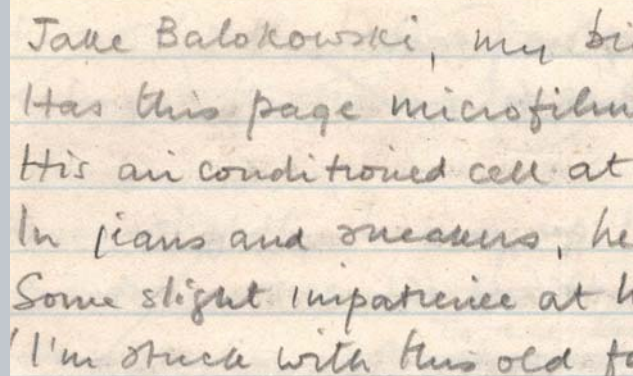 Jake Balokowski, my bi
Has this page microfilm
His air conditioned cell at
In jeans and sneakers, he
Some slight impatience at h
'I'm stuck with this old fa